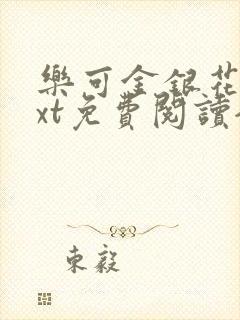 樂可金銀花
xt免費閱讀
東毅